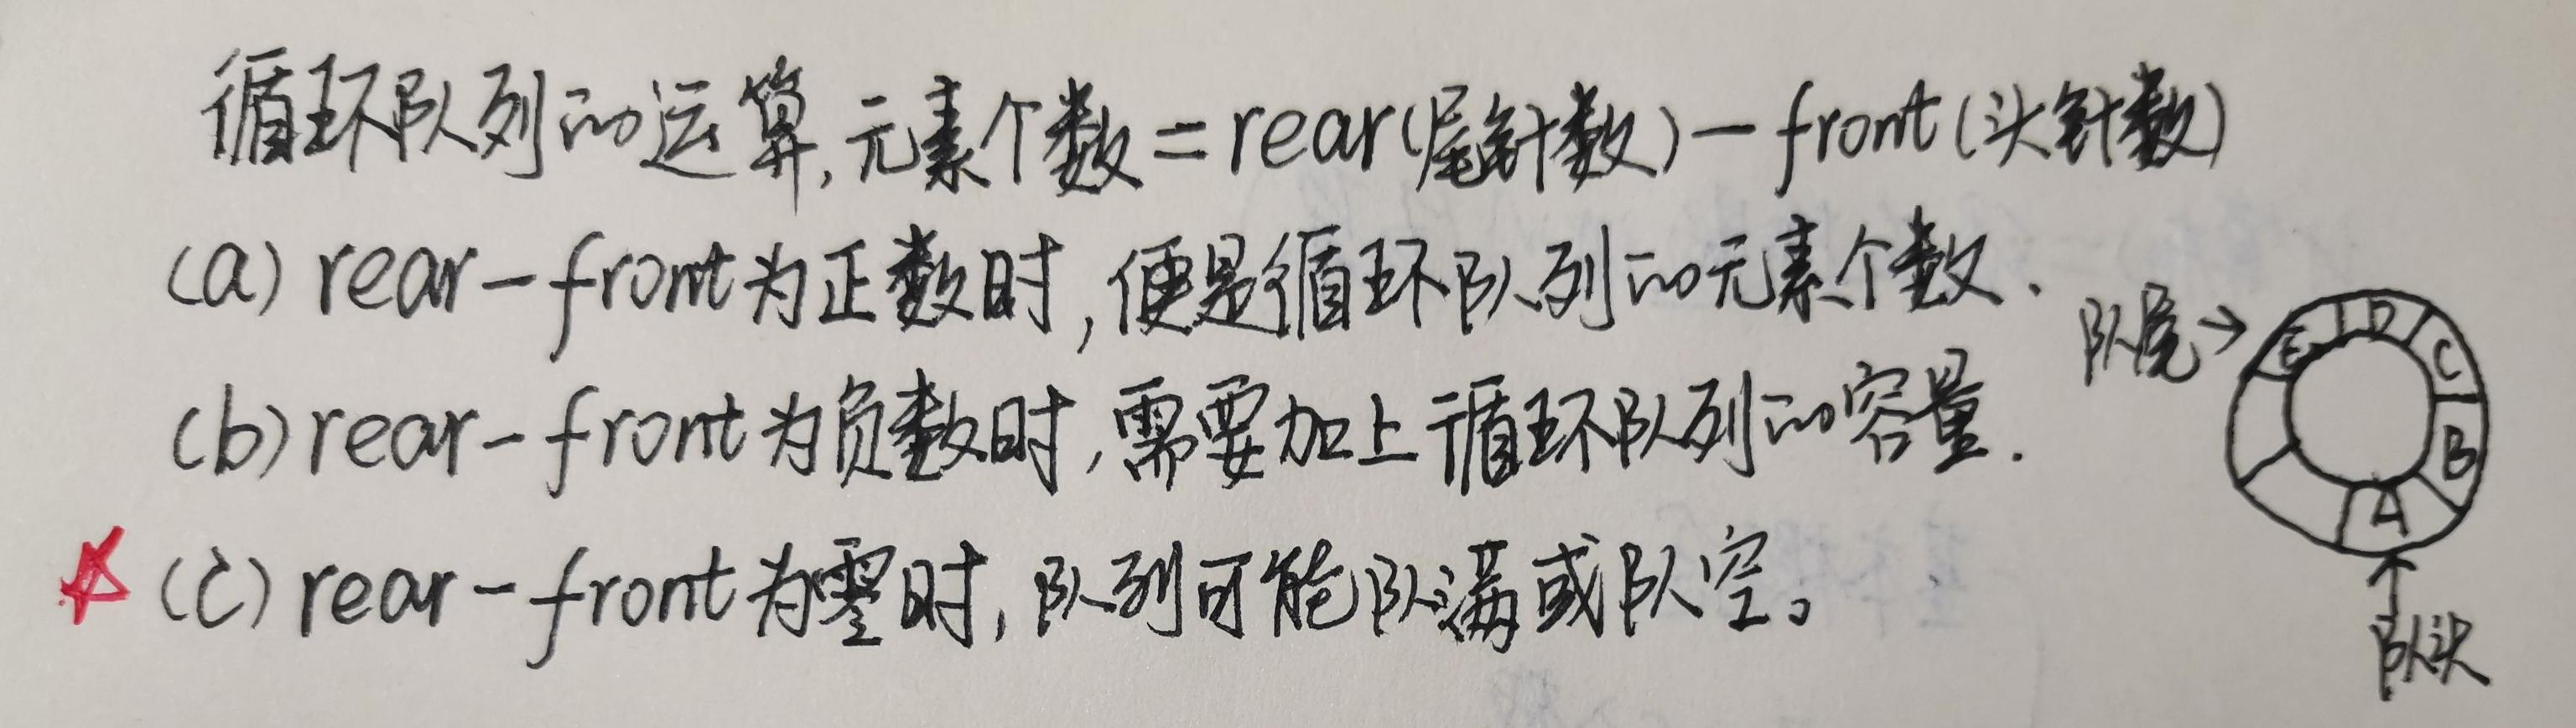 循环队列的运算,元素个数=rear(尾针数)-front(头针数)
(a) rear-front为正数时,便是循环队列的元素个数.
(b) rear-front为负数时,需要加上循环队列的容量.
(c) rear-front为零时,队列可能队满或队空。
队尾→
E D C
B
A
队头